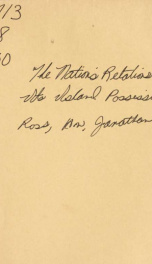 713
8
50
The Nation's Relations
its Island Possessi
Ross, Hon. Jonathan